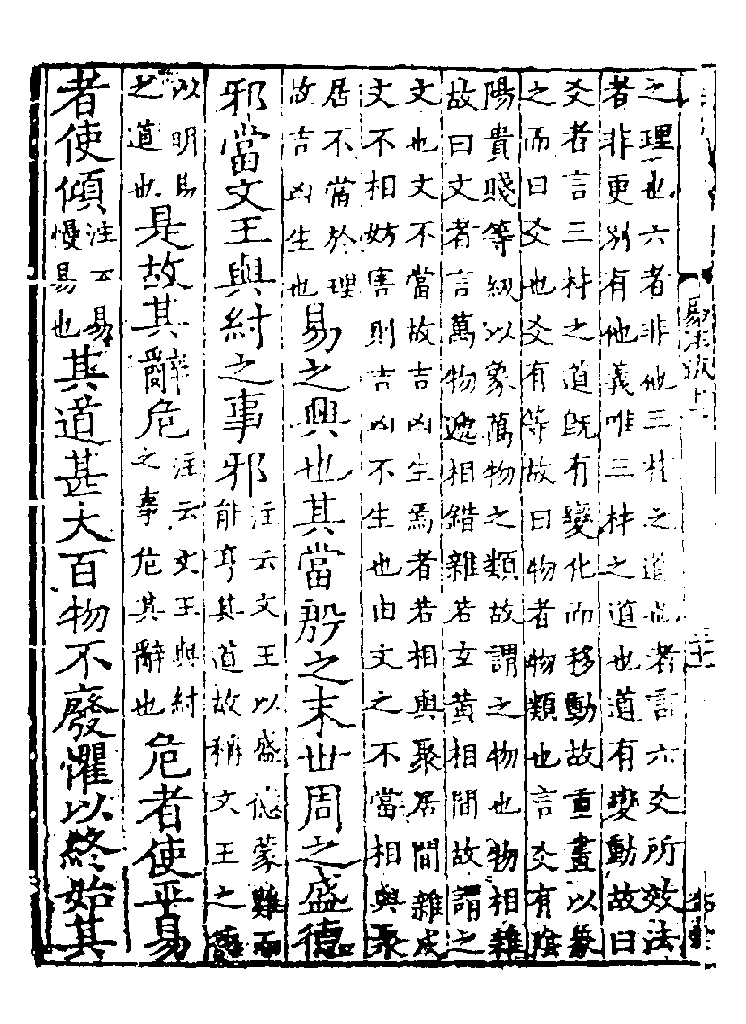 之理也六者非他三材之道也者言六爻所效法
者非更別有他義唯三材之道也道有變動故曰
爻者言三材之道既有變化而移動故重畫以象
之而曰爻也爻有等故曰物者物類也言爻有陰
陽貴賤等級以象萬物之類故謂之物也物相雜
故曰文者言萬物遞相錯雜若玄黃相間故謂之
文也文不當故吉凶生焉者若相與聚居間雜成
文不相妨害則吉凶不生也由文之不當相與聚
居不當於理
故吉凶生也
易之興也其當殷之末世周之盛德
邪當文王與紂之事邪
注云文王以盛德蒙難而
能亨其道故稱文王之
以明易
之道也
是故其辭危
注云文王與紂
之事危其辭也
危者使平易
者使傾
注不易
慢易也
其道甚大百物不廢懼以終始其